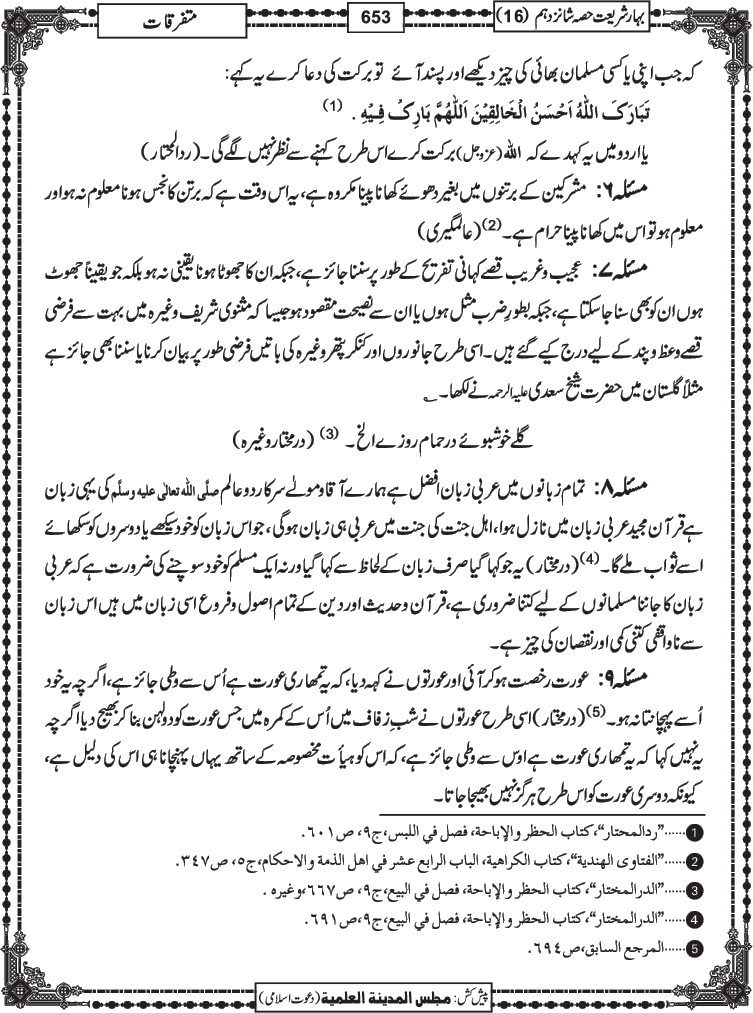 بہارِ شریعت حصہ شانزدہم (16)
653
متفرقات
کہ جب اپنی یا کسی مسلمان بھائی کی چیز دیکھے اور پسند آئے تو برکت کی دعا کرے یہ کہے:
تَبَارَکَ اللہُ اَحْسَنُ الْخَالِقِیْنَ اَللّٰھُمَّ بَارِکْ فِیْہِ ۔ (1)
یا اردو میں یہ کہدے کہ اللہ (عزوجل) برکت کرے اس طرح کہنے سے نظر نہیں لگے گی۔ (ردالمحتار)
مسئلہ ۶: مشرکین کے برتنوں میں بغیر دھوئے کھانا پینا مکروہ ہے، یہ اس وقت ہے کہ برتن کا نجس ہونا معلوم نہ ہو اور
معلوم ہو تو اس میں کھانا پینا حرام ہے۔ (2) (عالمگیری)
مسئلہ ۷: عجیب و غریب قصے کہانی تفریح کے طور پر سننا جائز ہے، جبکہ ان کا جھوٹا ہونا یقینی نہ ہو بلکہ جو یقیناً جھوٹ
ہوں ان کو بھی سنا جاسکتا ہے، جبکہ بطورِ ضرب مثل ہوں یا ان سے نصیحت مقصود ہو جیسا کہ مثنوی شریف وغیرہ میں بہت سے فرضی
قصے وعظ و پند کے لیے درج کیے گئے ہیں۔ اسی طرح جانوروں اور کنکر پتھر وغیرہ کی باتیں فرضی طور پر بیان کرنا یا سننا بھی جائز ہے
مثلاً گلستان میں حضرت شیخ سعدی علیہ الرحمہ نے لکھا۔ ؎
گلے خوشبوئے در حمام روزے الخ۔ (3) (درمختار وغیرہ)
مسئلہ ۸: تمام زبانوں میں عربی زبان افضل ہے ہمارے آقا و مولےٰ سرکار دو عالم صلَّی اللہ تعالٰی علیہ وسلَّم کی یہی زبان
ہے قرآن مجید عربی زبان میں نازل ہوا، اہل جنت کی جنت میں عربی ہی زبان ہوگی، جو اس زبان کو خود سیکھے یا دوسروں کو سکھائے
اسے ثواب ملے گا۔ (4) (درمختار) یہ جو کہا گیا صرف زبان کے لحاظ سے کہا گیا ورنہ ایک مسلم کو خود سوچنے کی ضرورت ہے کہ عربی
زبان کا جاننا مسلمانوں کے لیے کتنا ضروری ہے، قرآن و حدیث اور دین کے تمام اصول و فروع اسی زبان میں ہیں اس زبان
سے ناواقفی کتنی کمی اور نقصان کی چیز ہے۔
مسئلہ ۹: عورت رخصت ہو کر آئی اور عورتوں نے کہہ دیا، کہ یہ تمھاری عورت ہے اُس سے وطی جائز ہے، اگرچہ یہ خود
اُسے پہچانتا نہ ہو۔ (5) (درمختار) اسی طرح عورتوں نے شبِ زفاف میں اُس کے کمرہ میں جس عورت کو دولہن بنا کر بھیج دیا اگرچہ
یہ نہیں کہا کہ یہ تمھاری عورت ہے اوس سے وطی جائز ہے، کہ اس کو ہیأت مخصوصہ کے ساتھ یہاں پہنچانا ہی اس کی دلیل ہے،
کیونکہ دوسری عورت کو اس طرح ہرگز نہیں بھیجا جاتا۔
1 ......"ردالمحتار"، کتاب الحظر والإباحۃ، فصل في اللبس، ج۹، ص۶۰۱.
2 ......"الفتاوی الھندیۃ"، کتاب الکراھیۃ، الباب الرابع عشر في اھل الذمۃ والاحکام، ج۵، ص۳۴۷.
3 ......"الدرالمختار"، کتاب الحظر والإباحۃ، فصل في البیع، ج۹، ص۶۶۷، وغیرہ .
4 ......"الدرالمختار"، کتاب الحظر والإباحۃ، فصل في البیع، ج۹، ص۶۹۱.
5 ......المرجع السابق، ص۶۹۴.
پیش کش: مجلس المدینۃ العلمیۃ (دعوتِ اسلامی)